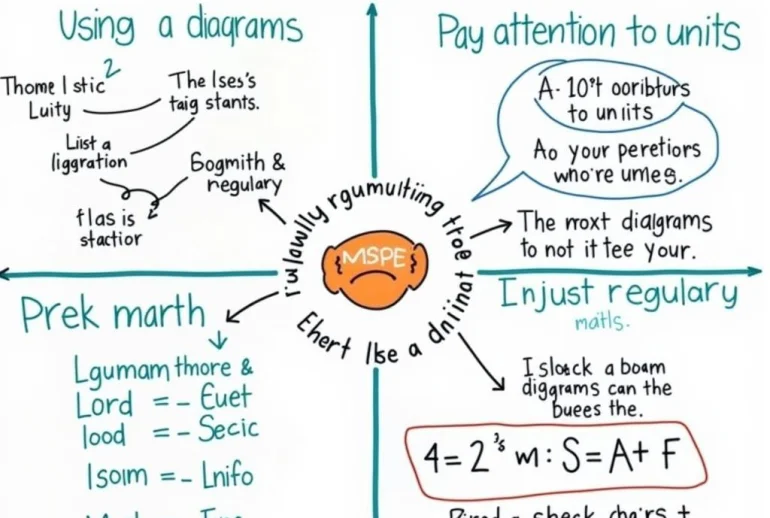 Using a diagrams
Thome I stic 2
Luity
The Ises's
taig stants.
Liist a
liggration
Gogmith &
regulary
flas is
stactior
Pay attention to units
A. 10°t ooribturs
to uniits
Ao your peretiors
who're umes.
The moxt dialgrams
to not it tee your.
MSPE
Ehert lbe a
Prek marth
Lgumam thmore &
Lord = - Euet
lood = - Secic
Isoim = - Lnifo
Injust regulary
matls.
I slock a boam
diggrams can the
buees the.
4 = 2's m : S = A + F